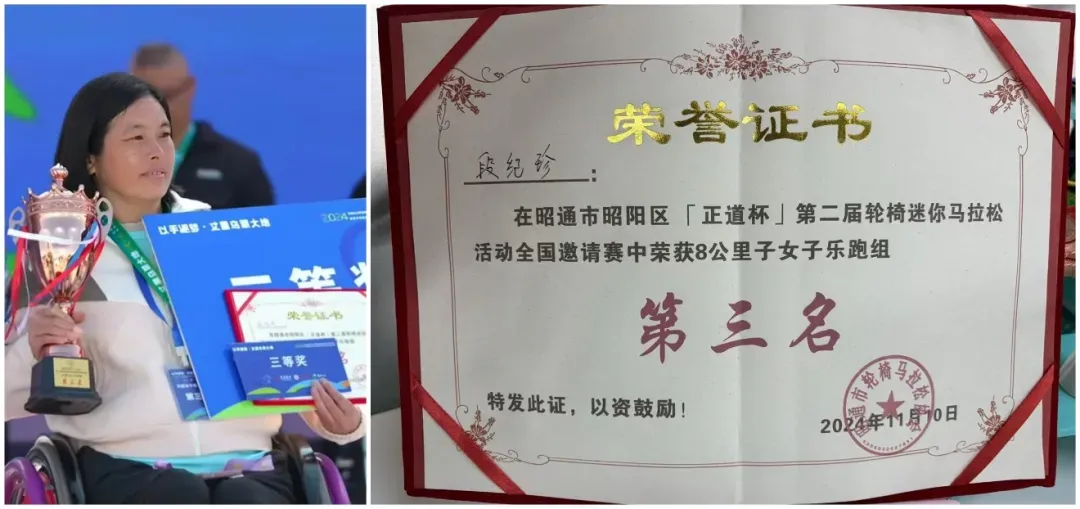 2024
以手逐梦·丈量乌蒙大地
荣誉证书
三等奖
荣誉证书
段纪珍：
在昭通市昭阳区「正道杯」第二届轮椅迷你马拉松
活动全国邀请赛中荣获8公里子女子乐跑组
第三名
特发此证，以资鼓励！
昭通市轮椅马拉松
2024年11月10日